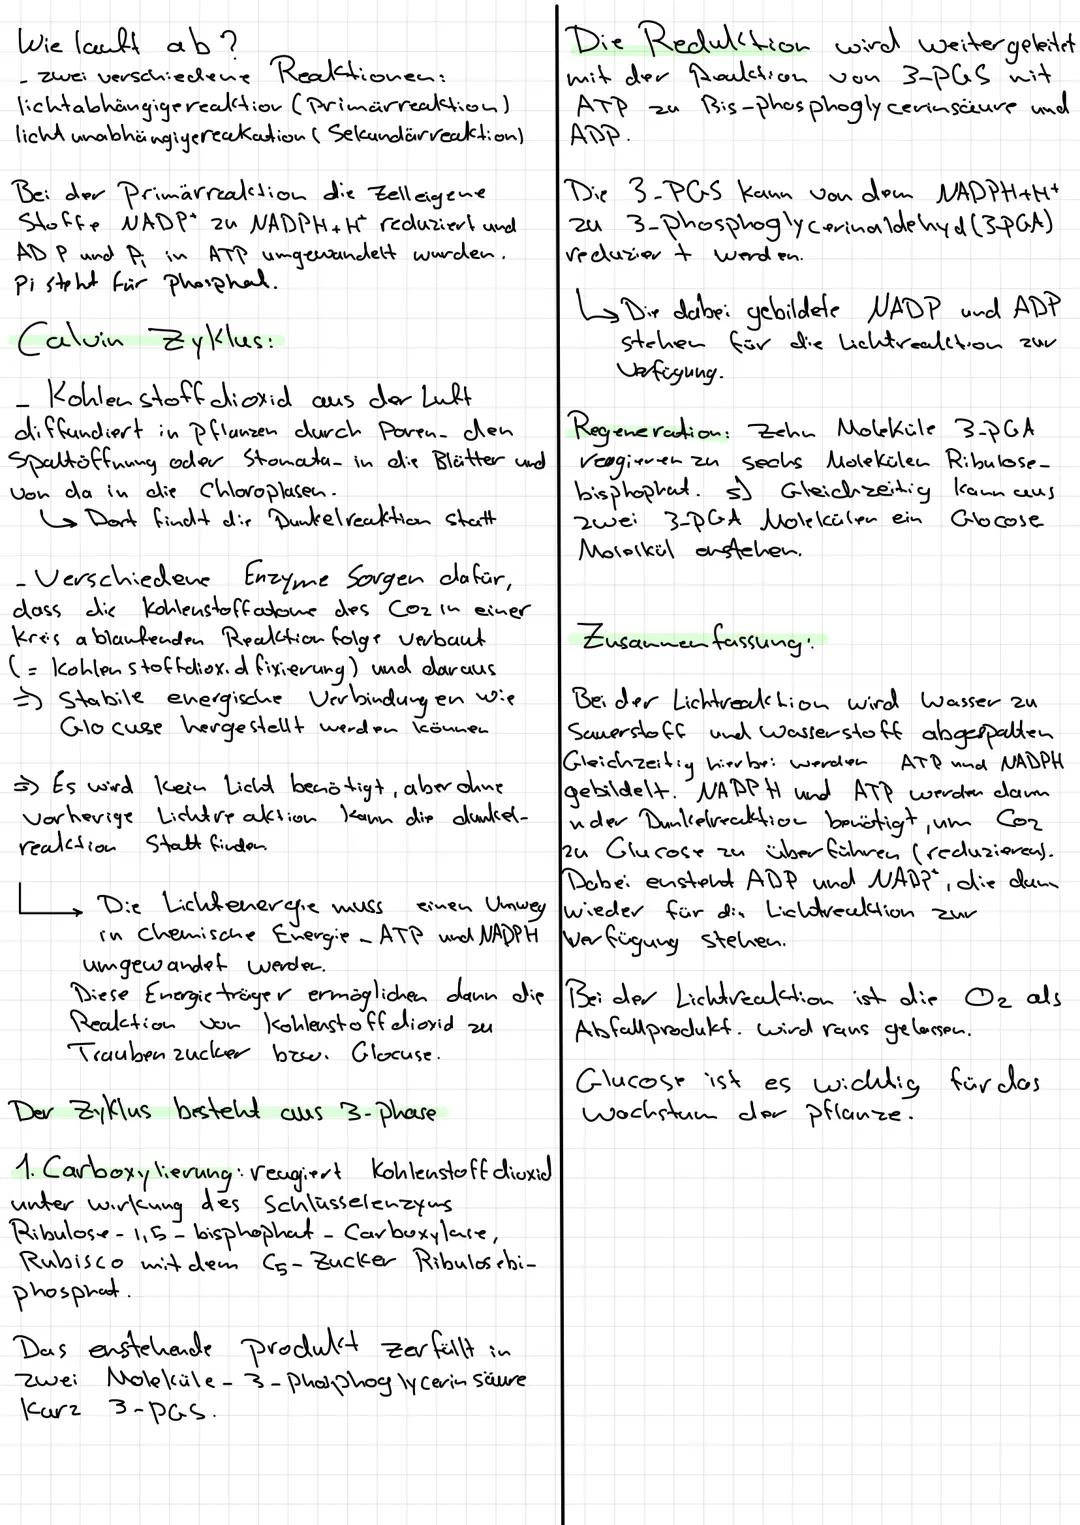 Wie läuft ab?
- zwei verschiedene Reaktionen:
lichtabhängigereaktion (Primärreaktion)
lichtunabhängigereakation (Sekundärreaktion)
Bei der Primärreaktion die Zelleigene
Stoffe NADP⁺ zu NADPH+H⁺ reduziert und
ADP und Pi in ATP umgewandelt wurden.
Pi steht für Phosphat.
Calvin Zyklus:
- Kohlenstoffdioxid aus der Luft
diffundiert in Pflanzen durch Poren- den
Spaltöffnung oder Stomata- in die Blätter und
von da in die Chloroplasen.
↳ Dort findt die Dunkelreaktion statt
- Verschiedene Enzyme Sorgen dafür,
dass die Kohlenstoffatome des CO2 in einer
Kreis ablaufenden Reaktionfolge verbaut
(= Kohlenstoffdioxidfixierung) und daraus
=> Stabile energische Verbindungen wie
Glocuse hergestellt werden können
=> Es wird kein Licht benötigt, aber ohne
vorherige Lichtreaktion kann die dunkel-
reaktion Stattfinden
↳ Die Lichtenergie muss einen Umweg
in chemische Energie - ATP und NADPH
umgewandet werden.
Diese Energieträger ermöglichen dann die
Reaktion von Kohlenstoffdioxid zu
Traubenzucker bzw. Glocuse.
Der Zyklus besteht aus 3-phase
1. Carboxylierung: reagiert Kohlenstoffdioxid
unter wirkung des Schlüsselenzyms
Ribulose-1,5-bisphophat-Carboxylase,
Rubisco mit dem C5-Zucker Ribulosebi-
phosphat.
Das enstehende produkt zerfällt in
zwei Moleküle-3-Phosphoglycerinsäure
Kurz 3-PGS.
Die Reduktion wird weitergeleitet
mit der Reaktion von 3-PGS mit
ATP zu Bis-phosphoglycerinsäure und
ADP.
Die 3-PGS kann von dem NADPH+H⁺
zu 3-Phosphoglycerinaldehyd (3-PGA)
reduziert werden.
↳ Die dabei gebildete NADP und ADP
stehen für die Lichtreaktion zur
Verfügung.
Regeneration: Zehn Moleküle 3-PGA
reagieren zu sechs Molekülen Ribulose-
bisphophat. => Gleichzeitig kann aus
zwei 3-PGA Molekülen ein Glocose
Molekül enstehen.
Zusammenfassung:
Bei der Lichtreaktion wird Wasser zu
Sauerstoff und Wasserstoff abgespalten
Gleichzeitig hierbei werden ATP und NADPH
gebildelt. NADPH und ATP werden dann
in der Dunkelreaktion benötigt, um CO2
zu Glucose zu überführen (reduzieren).
Dabei ensteht ADP und NADP⁺, die dann
wieder für die Lichtreaktion zur
Verfügung stehen.
Bei der Lichtreaktion ist die O2 als
Abfallprodukt. wird raus gelassen.
Glucose ist es wichtig für das
Wachstum der Pflanze.